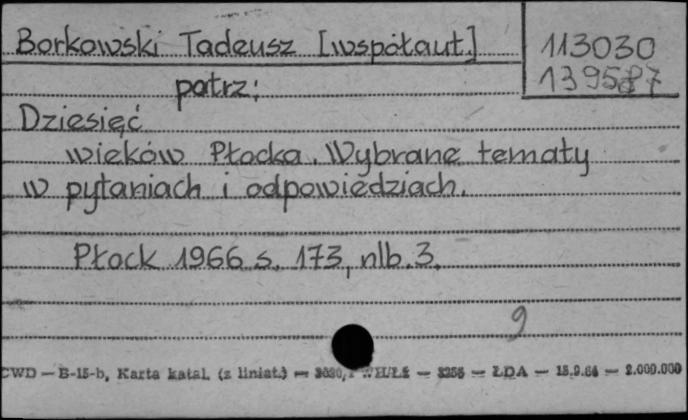 Borkowski Tadeusz [współaut.]
113030
patrz:
Dziesięć
wieków Płocka. Wybrane tematy
w pytaniach i odpowiedziach.
Płock 1966 s. 173, nlb. 3.
9
CWD — B-15-b, Karta katal. (z liniat.) — WH/Łż — ŁDA — 2.000.000